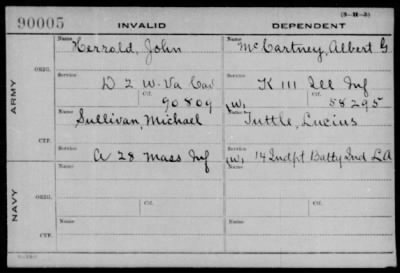 (3-H-3)
90005 INVALID DEPENDENT
Name Herrold, John Name McCartney, Albert G.
ARMY
ORIG.
Service D 2 W. Va Cav Service K 111 Ill Inf
Ctf. 90809 (W) Ctf. 58295
Name Sullivan, Michael Name Tuttle, Lucius
CTF.
Service A 28 Mass Inf Service (W) 14 Indpt Batty Ind L A
NAVY
ORIG.
Name Name
Service Service
Ctf. Ctf.
CTF.
Name Name
Service Service